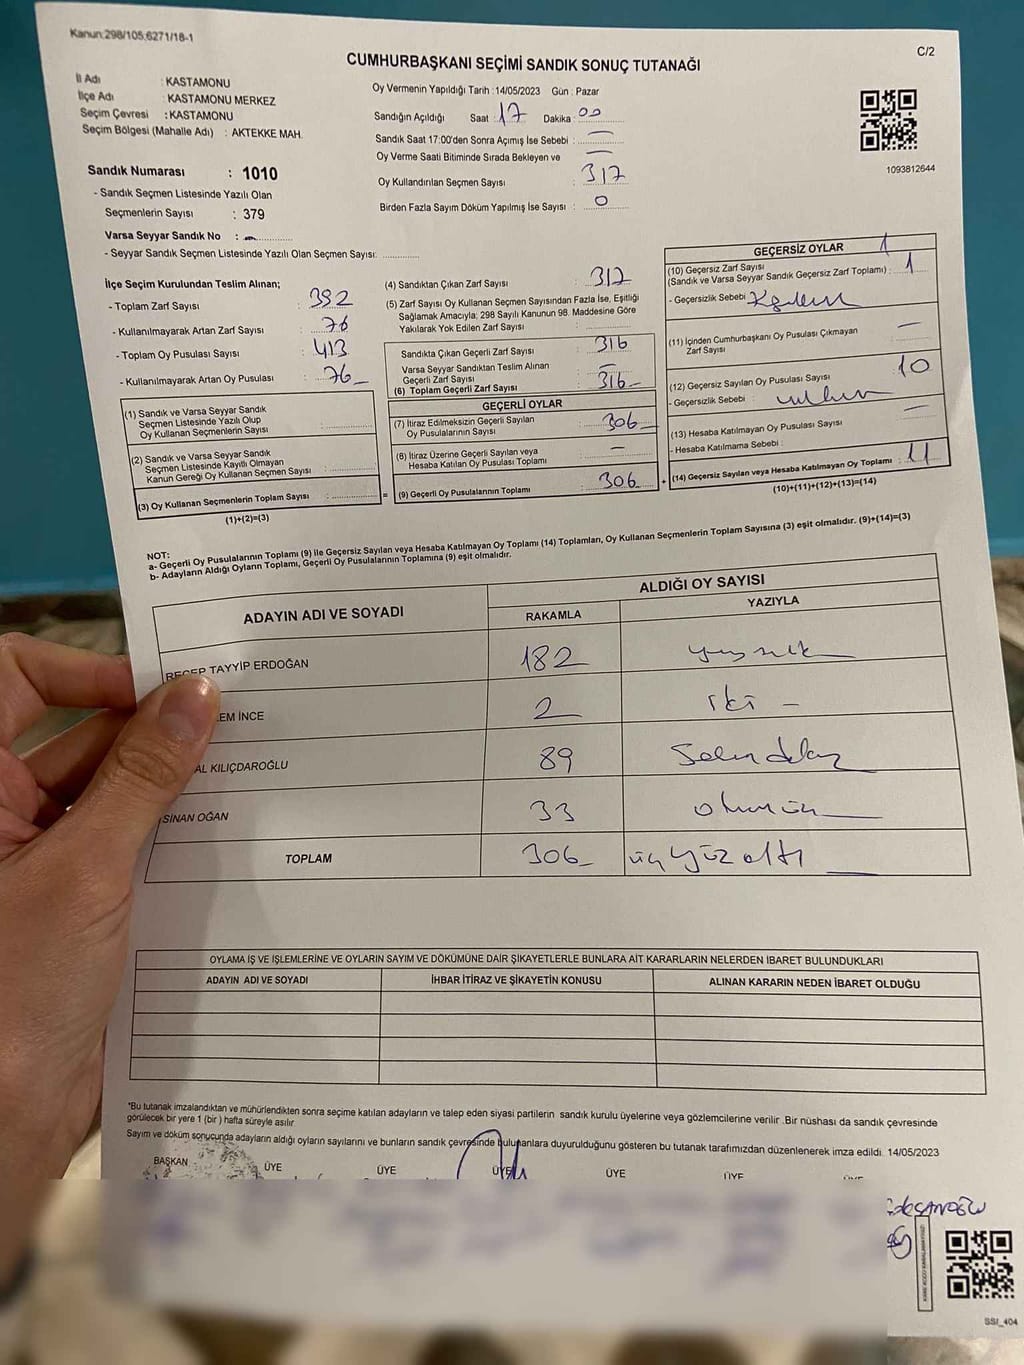 Kanun:298/105,6271/18-1
C/2
CUMHURBAŞKANI SEÇİMİ SANDIK SONUÇ TUTANAĞI
İl Adı : KASTAMONU
İlçe Adı : KASTAMONU MERKEZ
Seçim Çevresi : KASTAMONU
Seçim Bölgesi (Mahalle Adı) : AKTEKKE MAH.
Sandık Numarası : 1010
- Sandık Seçmen Listesinde Yazılı Olan
Seçmenlerin Sayısı : 379
Varsa Seyyar Sandık No :
- Seyyar Sandık Seçmen Listesinde Yazılı Olan Seçmen Sayısı:
Oy Vermenin Yapıldığı Tarih : 14/05/2023 Gün : Pazar
Sandığın Açıldığı Saat : 17 Dakika : 00
Sandık Saat 17:00'den Sonra Açımış İse Sebebi : —
Oy Verme Saati Bitiminde Sırada Bekleyen ve —
Oy Kullandırılan Seçmen Sayısı : 317
Birden Fazla Sayım Döküm Yapılmış İse Sayısı : 0
1093812644
İlçe Seçim Kurulundan Teslim Alınan;
- Toplam Zarf Sayısı : 392
- Kullanılmayarak Artan Zarf Sayısı : 76
- Toplam Oy Pusulası Sayısı : 413
- Kullanılmayarak Artan Oy Pusulası : 76
(1) Sandık ve Varsa Seyyar Sandık
Seçmen Listesinde Yazılı Olup
Oy Kullanan Seçmenlerin Sayısı :
(2) Sandık ve Varsa Seyyar Sandık
Seçmen Listesinde Kayıtlı Olmayan
Kanun Gereği Oy Kullanan Seçmen Sayısı :
(3) Oy Kullanan Seçmenlerin Toplam Sayısı : =
(1)+(2)=(3)
(4) Sandıktan Çıkan Zarf Sayısı : 317
(5) Zarf Sayısı Oy Kullanan Seçmen Sayısından Fazla İse, Eşitliği
Sağlamak Amacıyla; 298 Sayılı Kanunun 98. Maddesine Göre
Yakılarak Yok Edilen Zarf Sayısı :
Sandıkta Çıkan Geçerli Zarf Sayısı : 316
Varsa Seyyar Sandıktan Teslim Alınan
Geçerli Zarf Sayısı : —
(6) Toplam Geçerli Zarf Sayısı : 316
GEÇERLİ OYLAR
(7) İtiraz Edilmeksizin Geçerli Sayılan
Oy Pusulalarının Sayısı : 306
(8) İtiraz Üzerine Geçerli Sayılan veya
Hesaba Katılan Oy Pusulası Toplamı : —
(9) Geçerli Oy Pusulalarının Toplamı : 306 +
GEÇERSİZ OYLAR 1
(10) Geçersiz Zarf Sayısı
(Sandık ve Varsa Seyyar Sandık Geçersiz Zarf Toplamı) : 1
- Geçersizlik Sebebi :
(11) İçinden Cumhurbaşkanı Oy Pusulası Çıkmayan
Zarf Sayısı : —
(12) Geçersiz Sayılan Oy Pusulası Sayısı : 10
- Geçersizlik Sebebi :
(13) Hesaba Katılmayan Oy Pusulası Sayısı : —
- Hesaba Katılmama Sebebi :
(14) Geçersiz Sayılan veya Hesaba Katılmayan Oy Toplamı : 11
(10)+(11)+(12)+(13)=(14)
NOT:
a- Geçerli Oy Pusulalarının Toplamı (9) ile Geçersiz Sayılan veya Hesaba Katılmayan Oy Toplamı (14) Toplamları, Oy Kullanan Seçmenlerin Toplam Sayısına (3) eşit olmalıdır. (9)+(14)=(3)
b- Adayların Aldığı Oyların Toplamı, Geçerli Oy Pusulalarının Toplamına (9) eşit olmalıdır.
ADAYIN ADI VE SOYADI
ALDIĞI OY SAYISI
RAKAMLA YAZIYLA
RECEP TAYYİP ERDOĞAN 182
EM İNCE 2 iki -
AL KILIÇDAROĞLU 89
SİNAN OĞAN 33
TOPLAM 306 üç yüz altı
OYLAMA İŞ VE İŞLEMLERİNE VE OYLARIN SAYIM VE DÖKÜMÜNE DAİR ŞİKAYETLERLE BUNLARA AİT KARARLARIN NELERDEN İBARET BULUNDUKLARI
ADAYIN ADI VE SOYADI İHBAR İTİRAZ VE ŞİKAYETİN KONUSU ALINAN KARARIN NEDEN İBARET OLDUĞU
*Bu tutanak imzalandıktan ve mühürlendikten sonra seçime katılan adayların ve talep eden siyasi partilerin sandık kurulu üyelerine veya gözlemcilerine verilir .Bir nüshası da sandık çevresinde
görülecek bir yere 1 (bir ) hafta süreyle asılır
Sayım ve döküm sonucunda adayların aldığı oyların sayılarını ve bunların sandık çevresinde bulunanlara duyurulduğunu gösteren bu tutanak tarafımızdan düzenlenerek imza edildi. 14/05/2023
BAŞKAN ÜYE ÜYE ÜYE ÜYE ÜYE ÜYE
SSI_404